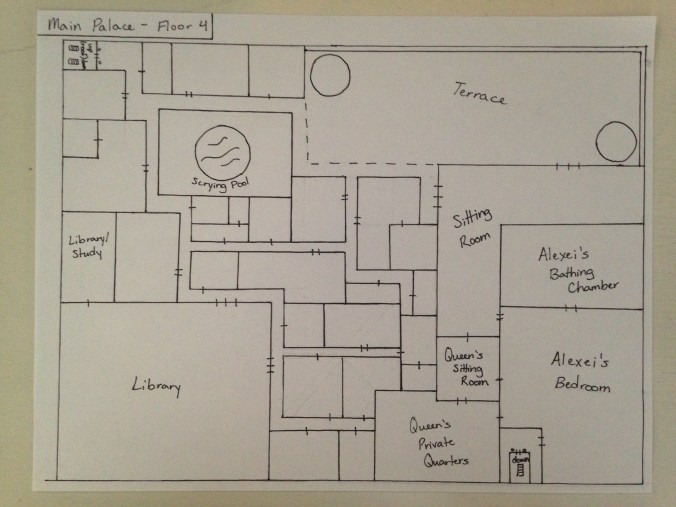 Main Palace - Floor 4
Terrace
Scrying Pool
Library/
Study
Sitting
Room
Alexei's
Bathing
Chamber
Queen's
Sitting
Room
Alexei's
Bedroom
Library
Queen's
Private
Quarters
down